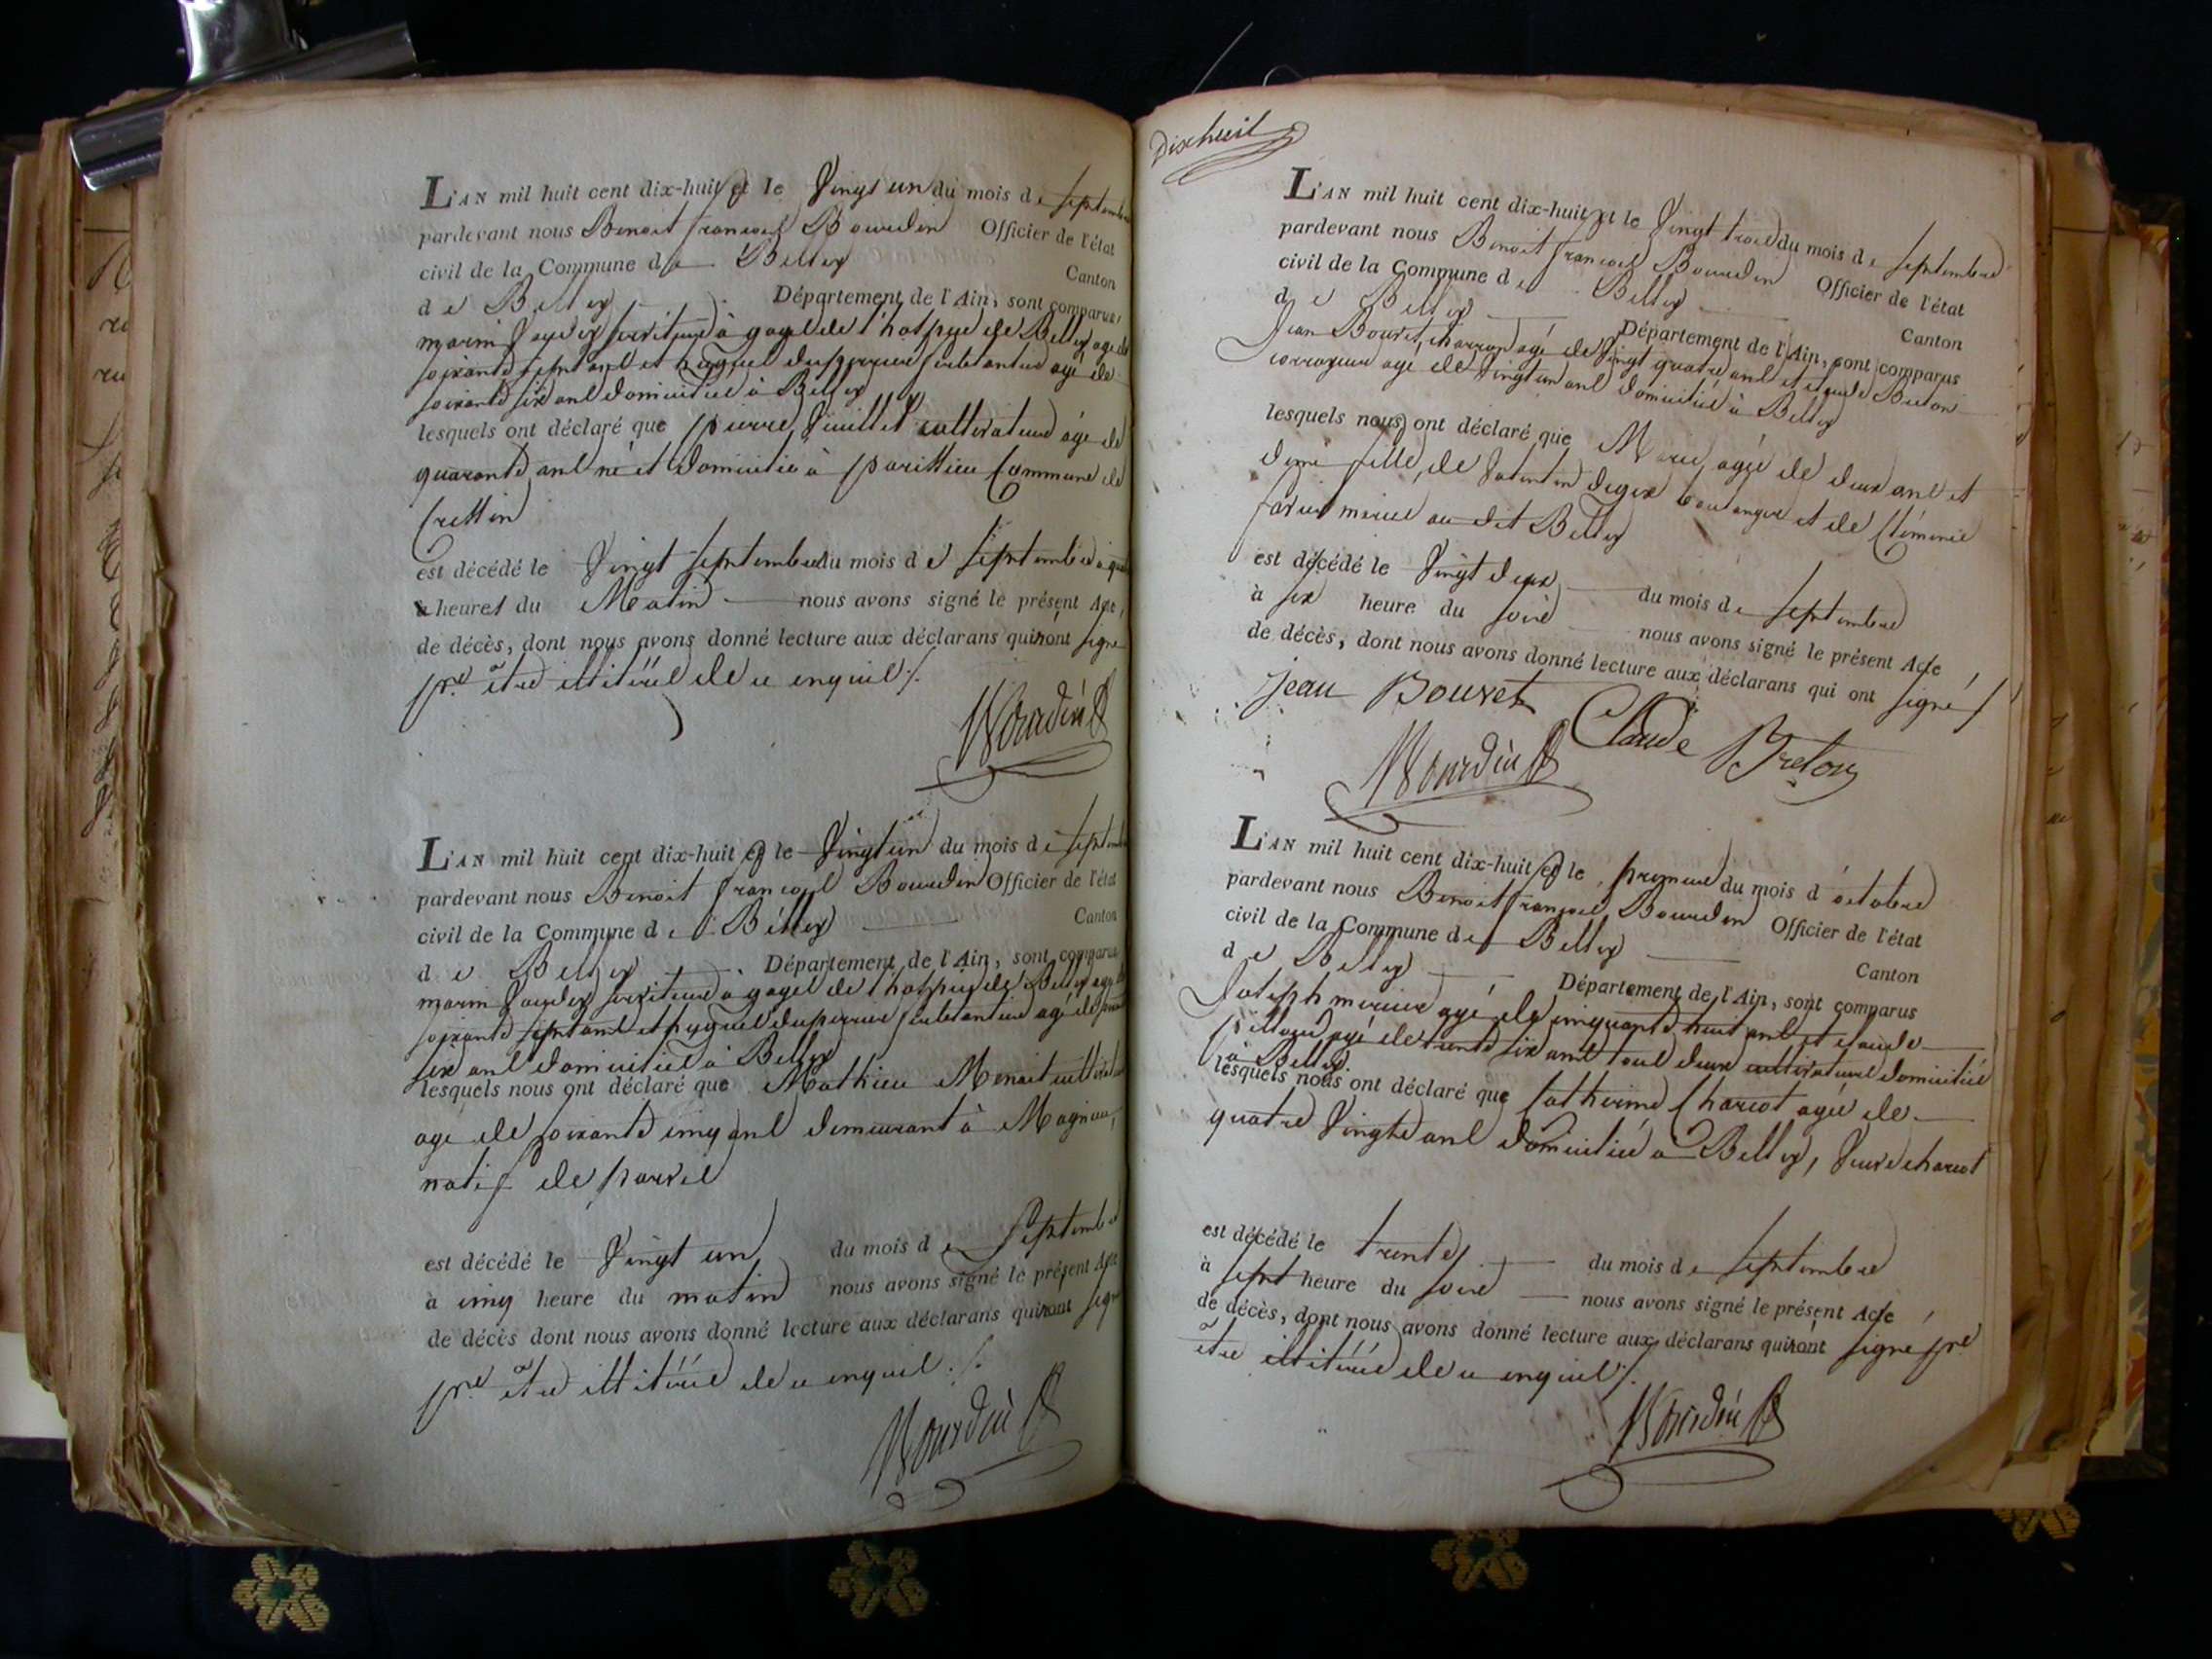 L'AN mil huit cent dix-huit et le Vingt un du mois de septembre
pardevant nous Benoit françois Bourdin Officier de l'état
civil de la Commune de Belley Canton
de Belley Département de l'Ain, sont comparus,
marin serviteur à gages de l'hospice de Belley agé de
soixante sept ans et huguel duperrier agé de
soixante six ans domiciliés à Belley
lesquels ont déclaré que pierre cultivateur âgé de
quarante ans né et domicilié à parissieu Commune de
est décédé le Vingt septembre du mois de septembre à
heures du Matin nous avons signé le présent Acte,
de décès, dont nous avons donné lecture aux déclarans qui n'ont signé
pr être illitérés de ce enquis ./.
Bourdin
L'AN mil huit cent dix-huit et le Vingt un du mois de septembre
pardevant nous Benoit françois Bourdin Officier de l'état
civil de la Commune de Belley Canton
de Belley Département de l'Ain, sont comparus
marin serviteur à gages de l'hospice de Belley agé de
soixante sept ans et duperrier agé de soixante
six ans domiciliés à Belley
lesquels nous ont déclaré que Mathieu Benoit cultivateur
agé de soixante cinq ans demeurant à Magnieu,
natif de parves
est décédé le Vingt un du mois de Septembre
à cinq heure du matin nous avons signé le présent Acte
de décès dont nous avons donné lecture aux déclarans qui n'ont signé
pr être illitérés de ce enquis ./.
Bourdin
Dixhuit
L'AN mil huit cent dix-huit et le Vingt trois du mois de septembre
pardevant nous Benoit françois Bourdin Officier de l'état
civil de la Commune de Belley Canton
de Belley Département de l'Ain, sont comparus
Jean Bouvet, charron agé de Vingt quatre ans et claude Breton
corroyeur agé de Vingt un ans domiciliés à Belley
lesquels nous ont déclaré que Marie agée de deux ans et
demi fille de boulanger et de Clémence
mariés au dit Belley
est décédé le Vingt deux du mois de septembre
à six heure du soire nous avons signé le présent Acte,
de décès, dont nous avons donné lecture aux déclarans qui ont signé /
jean Bouvet Claude Breton
Bourdin
L'AN mil huit cent dix-huit et le premier du mois d'octobre
pardevant nous Benoit françois Bourdin Officier de l'état
civil de la Commune de Belley Canton
de Belley Département de l'Ain, sont comparus
Joseph mercier agé de cinquante huit ans et claude
agé de trente six ans tous deux cultivateurs domiciliés
à Belley.
lesquels nous ont déclaré que Catherine Chariot agée de
quatre Vingts ans domiciliée à Belley, Veuve chariot
est décédé le trente du mois de septembre
à sept heure du soire nous avons signé le présent Acte,
de décès, dont nous avons donné lecture aux déclarans qui n'ont signé pr
être illitérés de ce enquis ./.
Bourdin